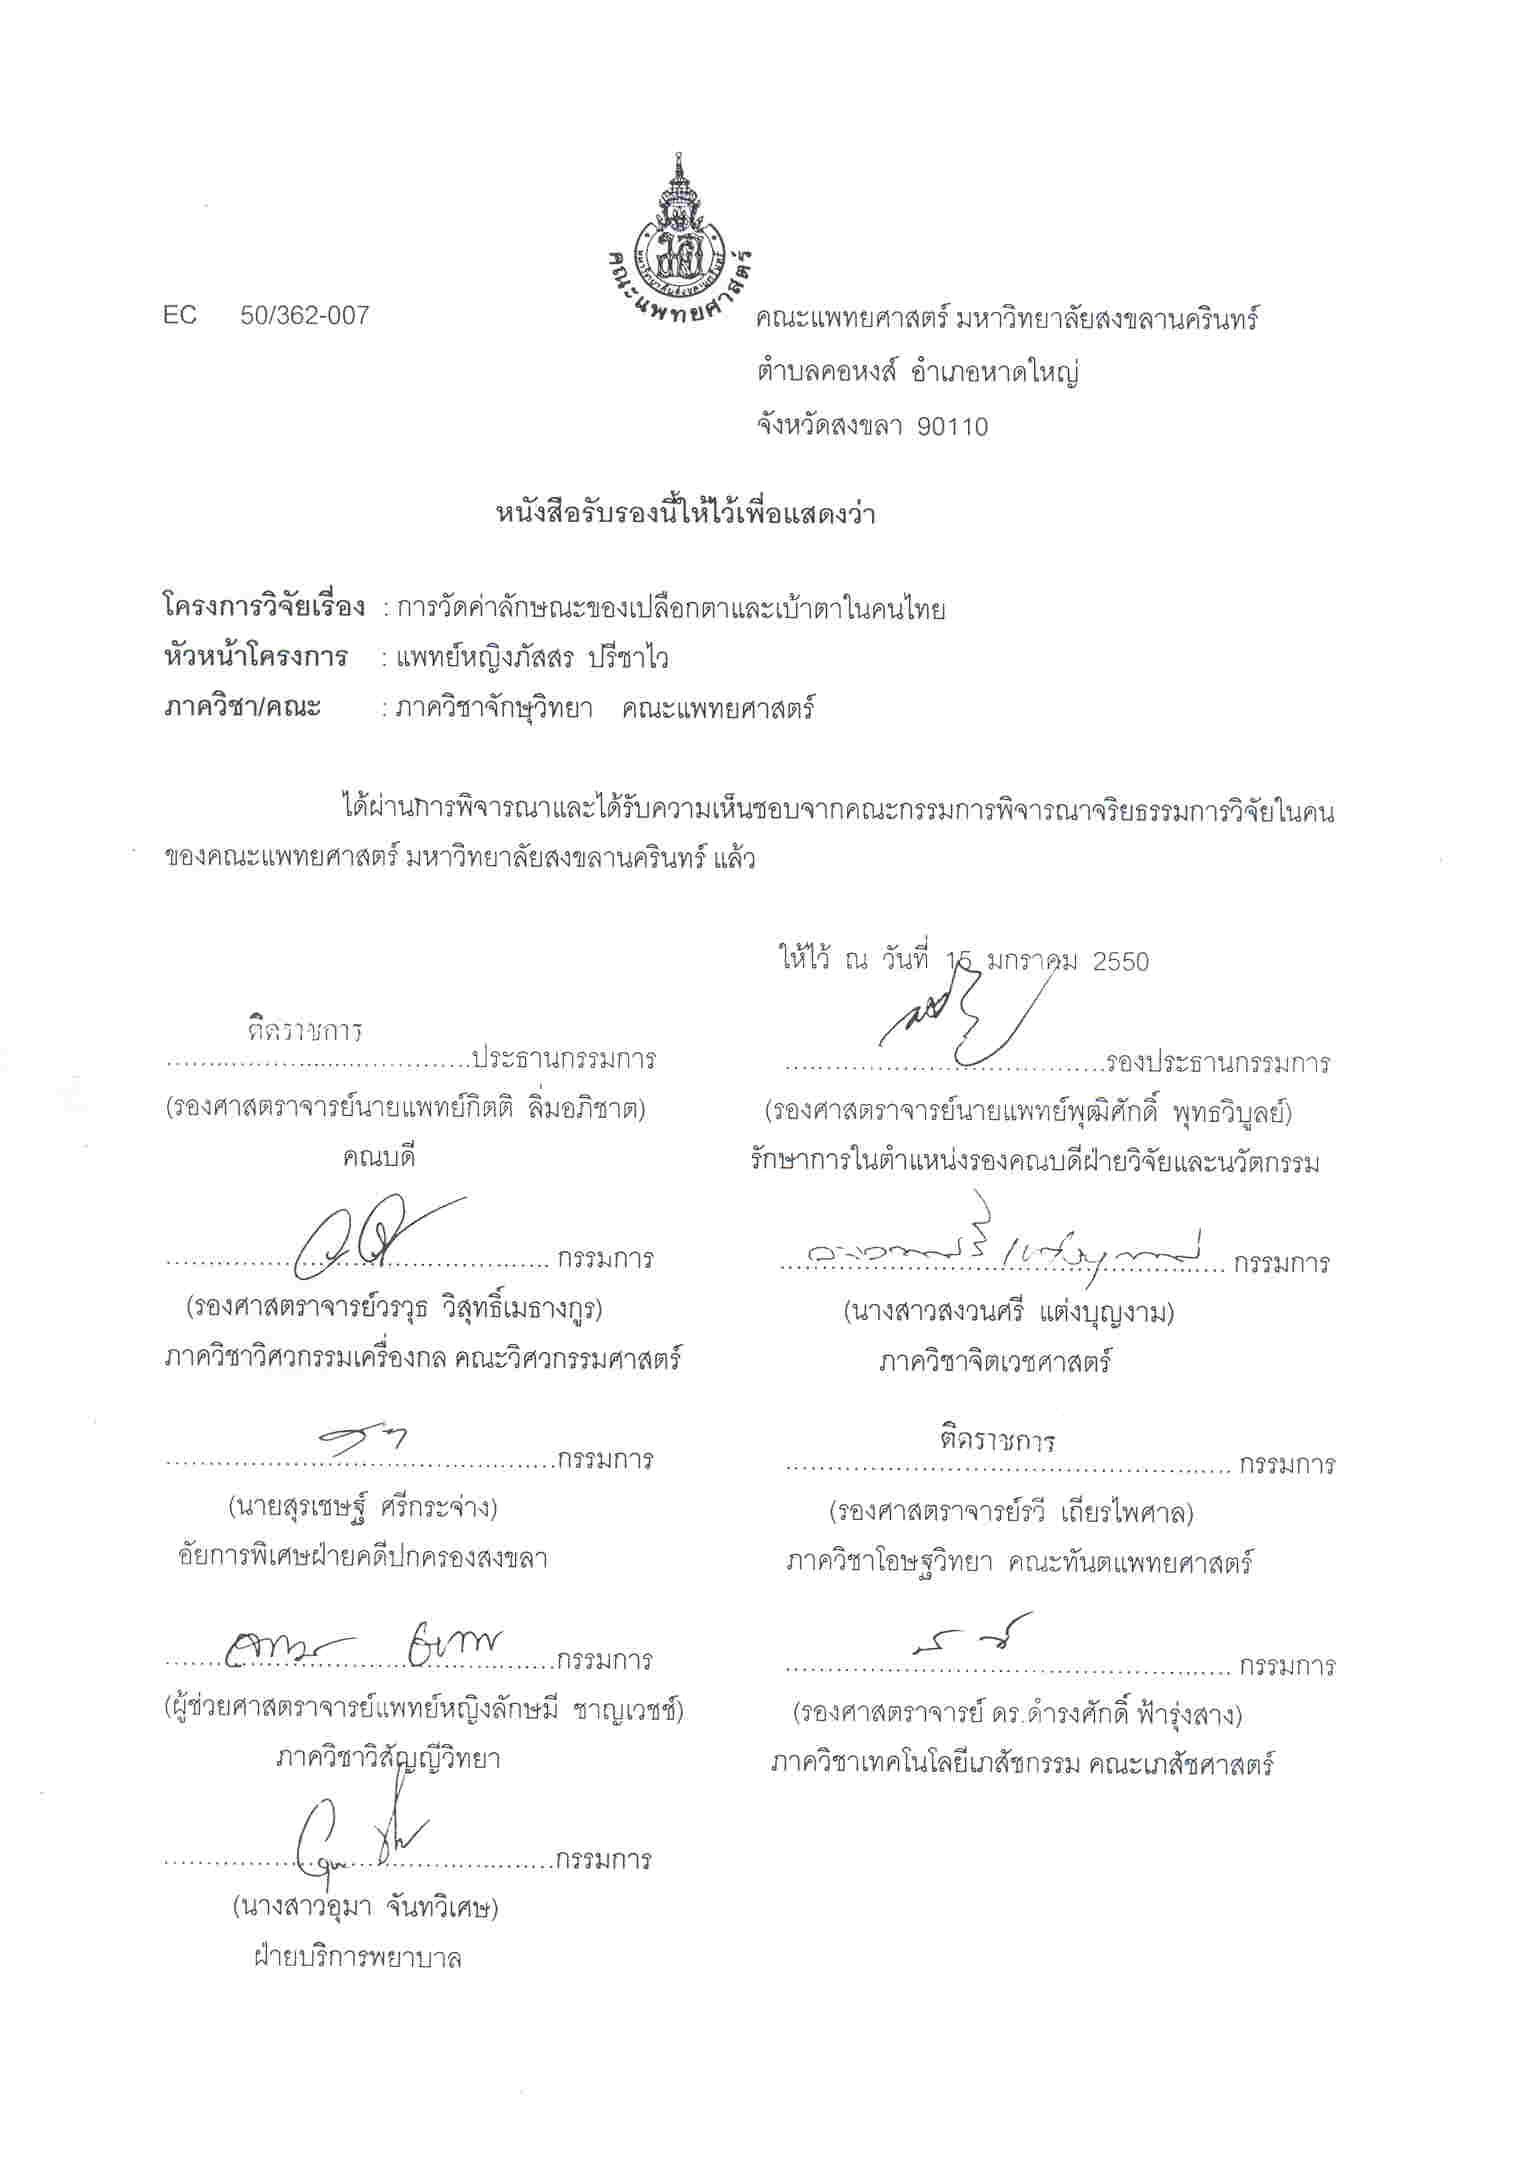 คณะแพทยศาสตร์
EC 50/362-007
คณะแพทยศาสตร์ มหาวิทยาลัยสงขลานครินทร์
ตำบลคอหงส์ อำเภอหาดใหญ่
จังหวัดสงขลา 90110
หนังสือรับรองนี้ให้ไว้เพื่อแสดงว่า
โครงการวิจัยเรื่อง : การวัดค่าลักษณะของเปลือกตาและเบ้าตาในคนไทย
หัวหน้าโครงการ : แพทย์หญิงภัสสร ปรีชาไว
ภาควิชา/คณะ : ภาควิชาจักษุวิทยา คณะแพทยศาสตร์
ได้ผ่านการพิจารณาและได้รับความเห็นชอบจากคณะกรรมการพิจารณาจริยธรรมการวิจัยในคน
ของคณะแพทยศาสตร์ มหาวิทยาลัยสงขลานครินทร์ แล้ว
ให้ไว้ ณ วันที่ 15 มกราคม 2550
ติดราชการ
ประธานกรรมการ รองประธานกรรมการ
(รองศาสตราจารย์นายแพทย์กิตติ ลิ่มอภิชาต) (รองศาสตราจารย์นายแพทย์พุฒิศักดิ์ พุทธวิบูลย์)
คณบดี รักษาการในตำแหน่งรองคณบดีฝ่ายวิจัยและนวัตกรรม
กรรมการ กรรมการ
(รองศาสตราจารย์วรวุธ วิสุทธิ์เมธางกูร) (นางสาวสงวนศรี แต่งบุญงาม)
ภาควิชาวิศวกรรมเครื่องกล คณะวิศวกรรมศาสตร์ ภาควิชาจิตเวชศาสตร์
ติดราชการ
กรรมการ กรรมการ
(นายสุรเชษฐ์ ศรีกระจ่าง) (รองศาสตราจารย์รวี เถียรไพศาล)
อัยการพิเศษฝ่ายคดีปกครองสงขลา ภาควิชาโอษฐวิทยา คณะทันตแพทยศาสตร์
กรรมการ กรรมการ
(ผู้ช่วยศาสตราจารย์แพทย์หญิงลักษมี ชาญเวชช์) (รองศาสตราจารย์ ดร.ดำรงศักดิ์ ฟ้ารุ่งสาง)
ภาควิชาวิสัญญีวิทยา ภาควิชาเทคโนโลยีเภสัชกรรม คณะเภสัชศาสตร์
กรรมการ
(นางสาวอุมา จันทวิเศษ)
ฝ่ายบริการพยาบาล